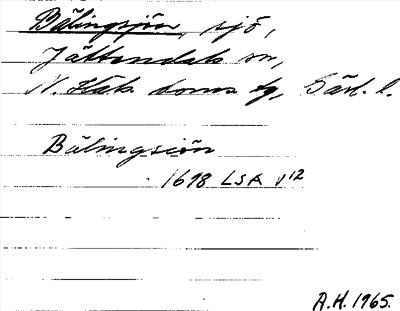 Bälingsjön, sjö,
Jättendals sn,
N. Häls. doms tg, Gävl. l.
Bälingsiön
1698 LSA V12
A.H. 1965.